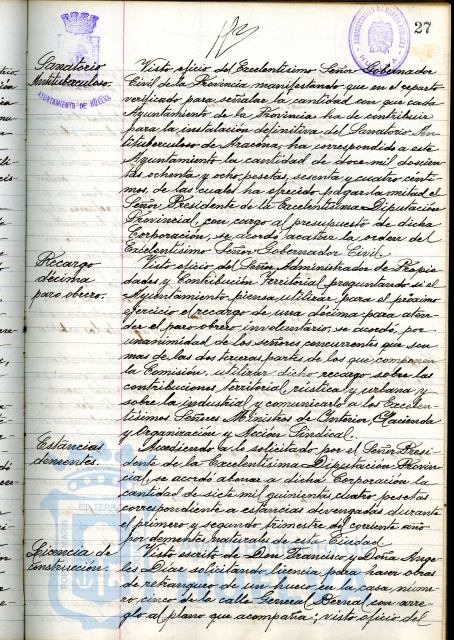 27
AYUNTAMIENTO DE HUELVA
Sanatorio
Antituberculoso.
Visto oficio del Excelentísimo Señor Gobernador
Civil de la Provincia manifestando que en el reparto
verificado para señalar la cantidad con que cada
Ayuntamiento de la Provincia ha de contribuir
para la instalación definitiva del Sanatorio An-
tituberculoso de Aracena, ha correspondido a este
Ayuntamiento la cantidad de doce mil doscien-
tas ochenta y ocho pesetas, sesenta y cuatro cénti-
mos, de las cuales ha ofrecido pagar la mitad el
Señor Presidente de la Excelentísima Diputación
Provincial, con cargo al presupuesto de dicha
Corporación, se acordó acatar la orden del
Excelentísimo Señor Gobernador Civil.
Recargo
décima
paro obrero.
Visto oficio del Señor Administrador de Propie-
dades y Contribución Territorial preguntando si el
Ayuntamiento piensa utilizar para el próximo
ejercicio el recargo de una décima para aten-
der el paro obrero involuntario, se acordó, por
unanimidad de los señores concurrentes que son
mas de las dos terceras partes de los que componen
la Comisión, utilizar dicho recargo sobre las
contribuciones territorial, rústica y urbana, y
sobre la industrial y comunicarlo a los Excelen-
tísimos Señores Ministros de Interior, Hacienda
y Organización y Acción Sindical.
Estancias
dementes.
Accediendo a lo solicitado por el Señor Presi-
dente de la Excelentísima Diputación Provin-
cial, se acordó abonar a dicha Corporación la
cantidad de siete mil quinientas cuatro pesetas
correspondiente a estancias devengadas durante
el primero y segundo trimestre del corriente año
por dementes naturales de esta Ciudad.
Licencia de
construcción.
Visto escrito de Don Francisco y Doña Ange-
les Diaz solicitando licencia para hacer obras
de retranqueo de un hueco en la casa núme-
ro cinco de la calle General Bernal con arre-
glo al plano que acompaña; visto oficio del